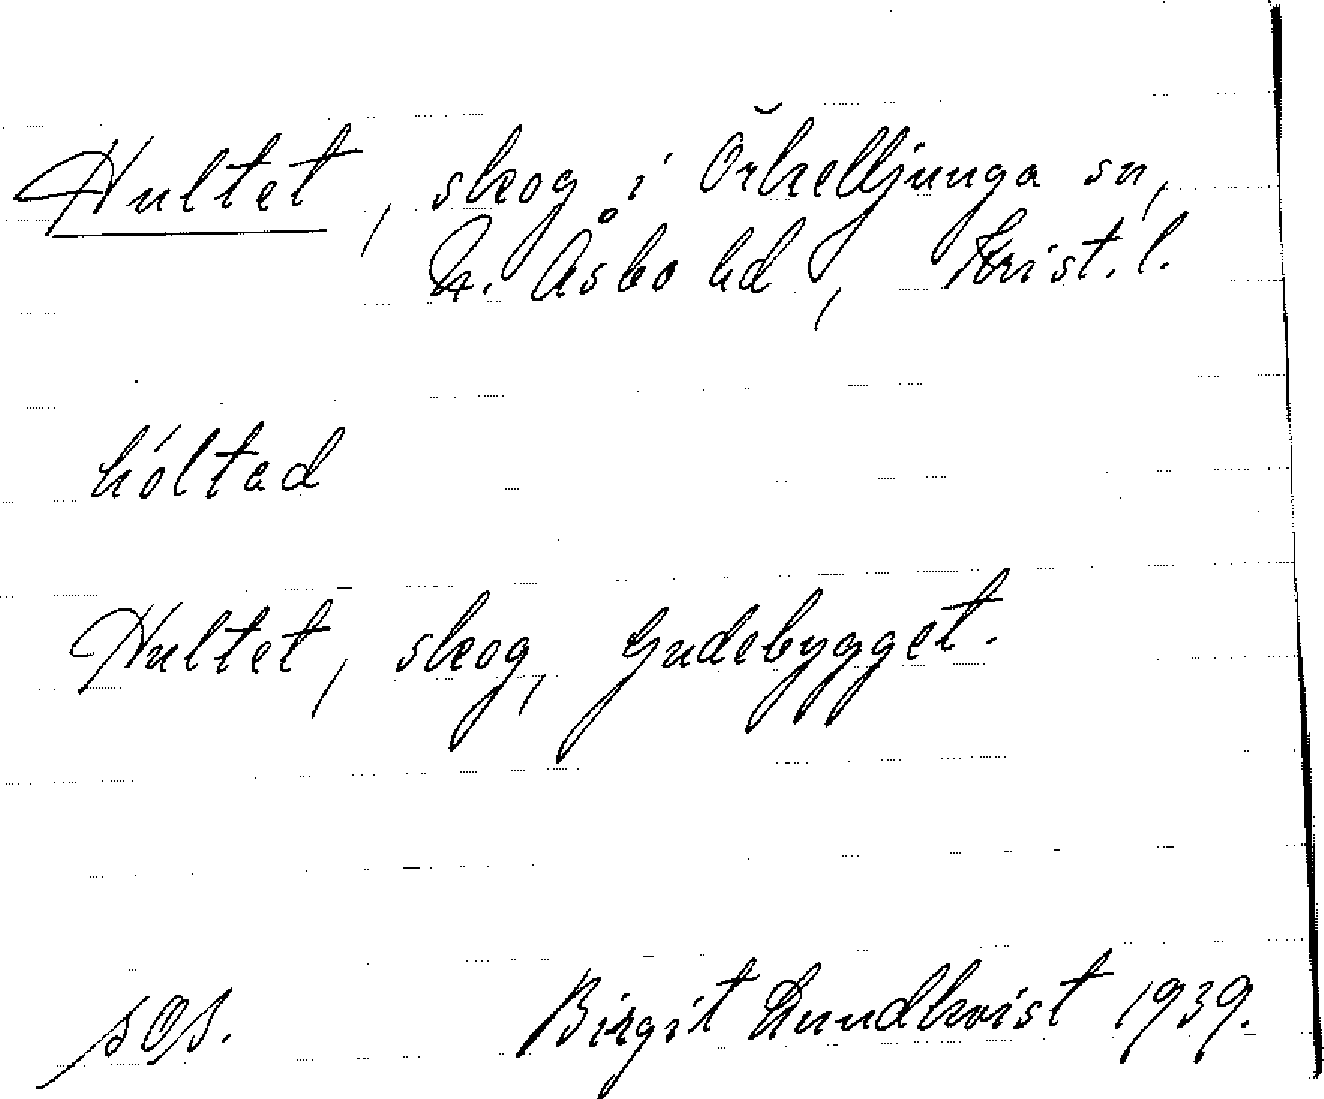 Hultet, skog i Örkelljunga sn,
N. Åsbo hd, Krist. l.
hóltad
Hultet, skog, Gudebygget.
sOs. Birgit Lundkvist 1939.